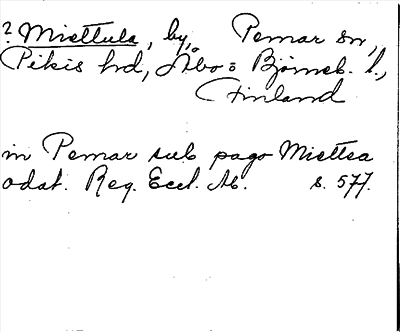 ? Miettula, by, Pemar sn,
Pikis hrd, Åbo = Björneb. l.,
Finland
in Pemar sub pago Miettea
odat. Reg. Eccl. Ab. s. 577.